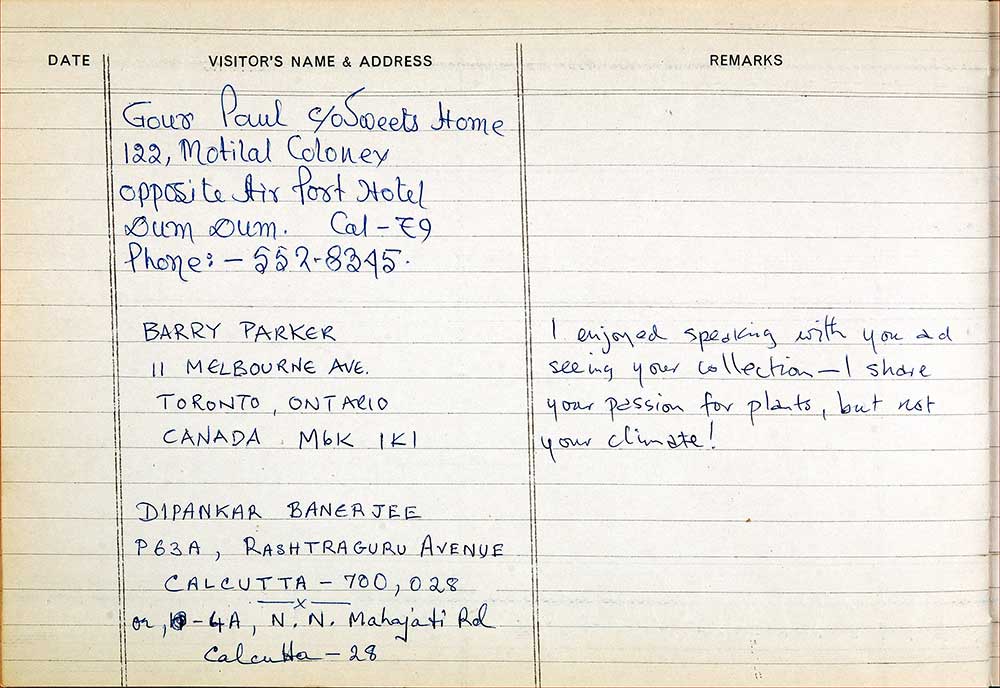 DATE VISITOR'S NAME & ADDRESS REMARKS
Gour Paul c/o Sweets Home
122, Motilal Coloney
opposite Air Port Hotel
Dum Dum. Cal - 79
Phone:- 552-8345.
BARRY PARKER
11 MELBOURNE AVE.
TORONTO, ONTARIO
CANADA M6K 1K1
I enjoyed speaking with you ad
seeing your collection - I share
your passion for plants, but not
your climate!
DIPANKAR BANERJEE
P63A, RASHTRAGURU AVENUE
CALCUTTA - 700,028
x
or, -4A, N. N. Mahajati Rd
Calcutta - 28